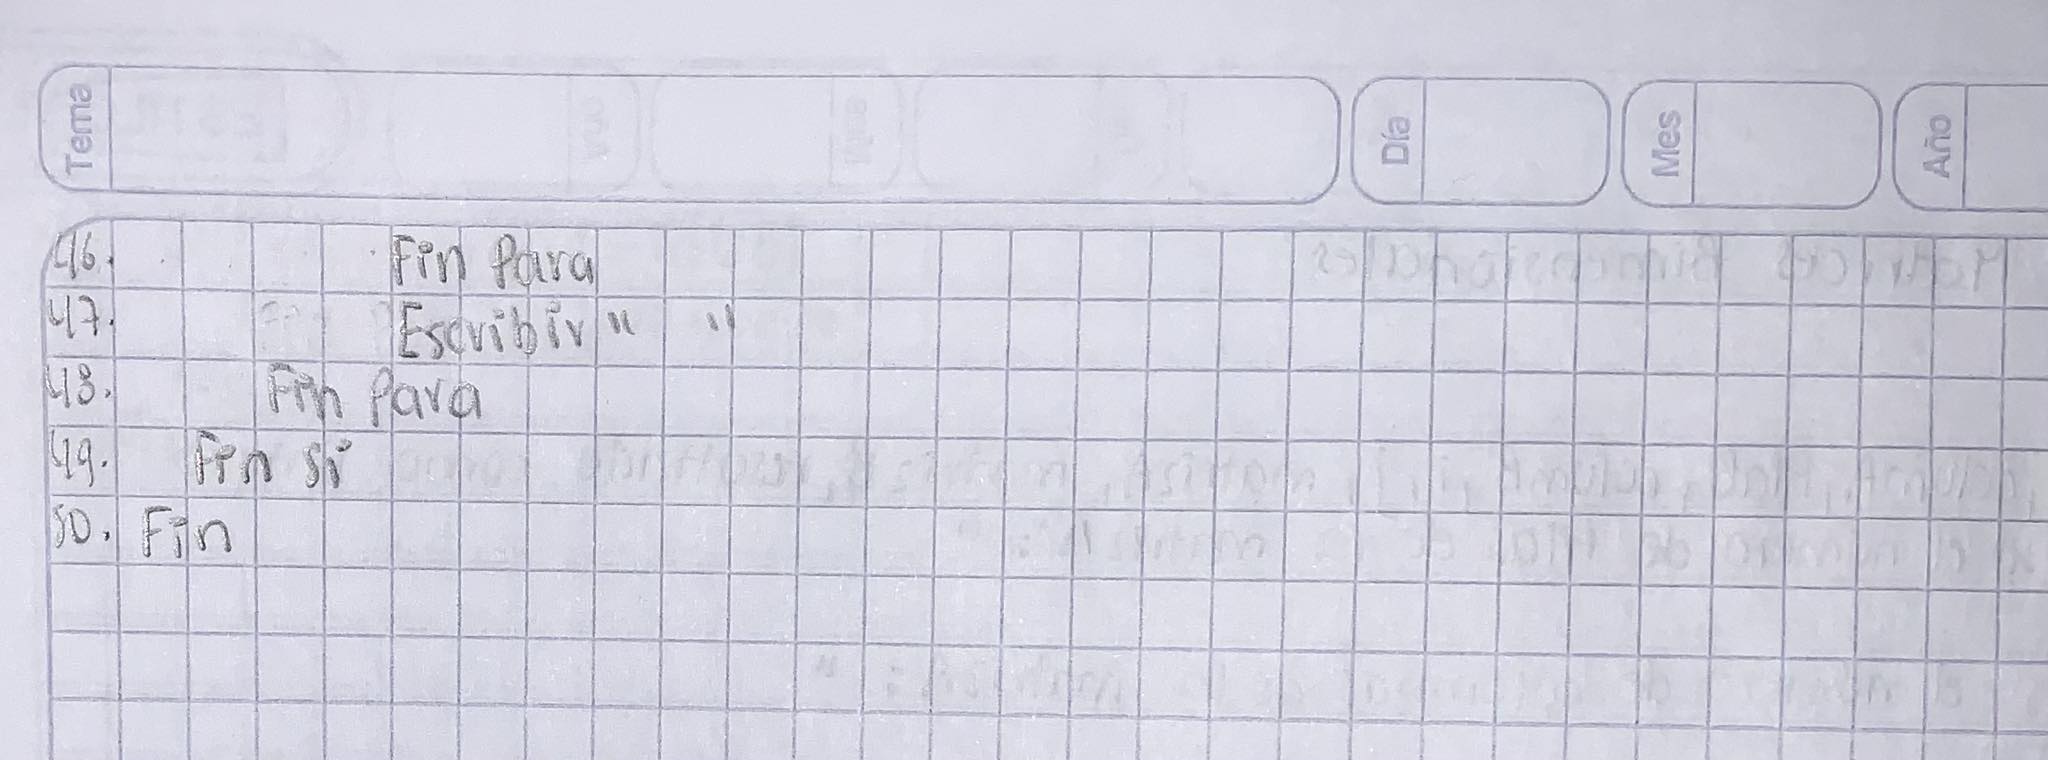 Tema Día Mes Año
46. Fin Para
47. Escribir " "
48. Fin Para
49. Fin Si
50. Fin